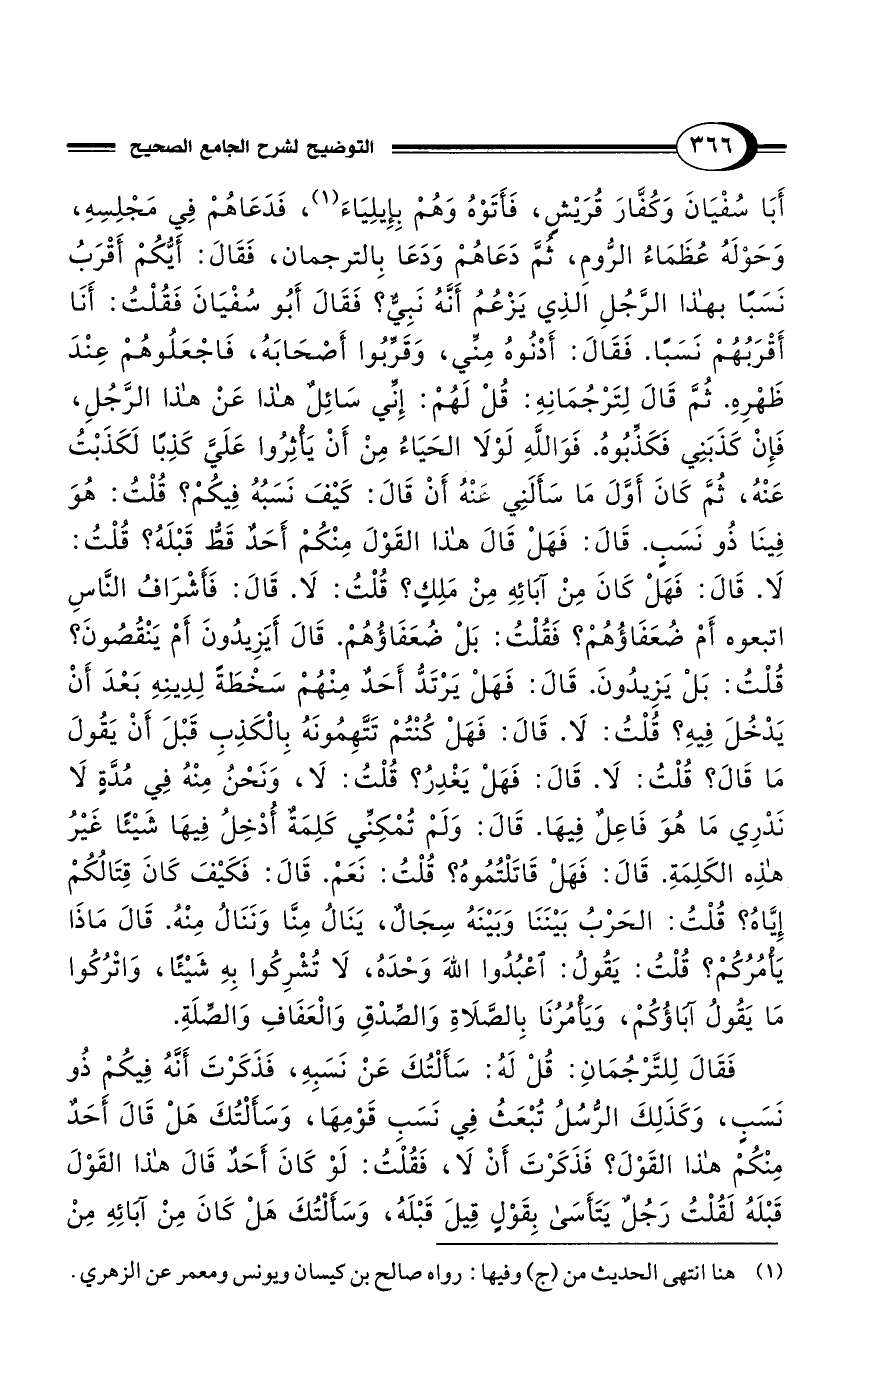 ٣٦٦ التوضيح لشرح الجامع الصحيح
أَبَا سُفْيَانَ وَكُفَّارَ قُرَيْشٍ، فَأَتَوْهُ وَهُمْ بِإِيلِيَاءَ(١)، فَدَعَاهُمْ فِي مَجْلِسِهِ،
وَحَوْلَهُ عُظَمَاءُ الرُّومِ، ثُمَّ دَعَاهُمْ وَدَعَا بِالترجمان، فَقَالَ: أَيُّكُمْ أَقْرَبُ
نَسَبًا بهذا الرَّجُلِ الَذِي يَزْعُمُ أَنَّهُ نَبِيٌّ؟ فَقَالَ أَبُو سُفْيَانَ فَقُلْتُ: أَنَا
أَقْرَبُهُمْ نَسَبًا. فَقَالَ: أَدْنُوهُ مِنِّي، وَقَرِّبُوا أَصْحَابَهُ، فَاجْعَلُوهُمْ عِنْدَ
ظَهْرِهِ. ثُمَّ قَالَ لِتَرْجُمَانِهِ: قُلْ لَهُمْ: إِنِّي سَائِلٌ هذا عَنْ هذا الرَّجُلِ،
فَإِنْ كَذَبَنِي فَكَذِّبُوهُ. فَوَاللَّهِ لَوْلَا الحَيَاءُ مِنْ أَنْ يَأْثِرُوا عَلَيَّ كَذِبًا لَكَذَبْتُ
عَنْهُ، ثُمَّ كَانَ أَوَّلَ مَا سَأَلَنِي عَنْهُ أَنْ قَالَ: كَيْفَ نَسَبُهُ فِيكُمْ؟ قُلْتُ: هُوَ
فِينَا ذُو نَسَبٍ. قَالَ: فَهَلْ قَالَ هذا القَوْلَ مِنْكُمْ أَحَدٌ قَطُّ قَبْلَهُ؟ قُلْتُ:
لَا. قَالَ: فَهَلْ كَانَ مِنْ آبَائِهِ مِنْ مَلِكٍ؟ قُلْتُ: لَا. قَالَ: فَأَشْرَافُ النَّاسِ
اتبعوه أَمْ ضُعَفَاؤُهُمْ؟ فَقُلْتُ: بَلْ ضُعَفَاؤُهُمْ. قَالَ أَيَزِيدُونَ أَمْ يَنْقُصُونَ؟
قُلْتُ: بَلْ يَزِيدُونَ. قَالَ: فَهَلْ يَرْتَدُّ أَحَدٌ مِنْهُمْ سَخْطَةً لِدِينِهِ بَعْدَ أَنْ
يَدْخُلَ فِيهِ؟ قُلْتُ: لَا. قَالَ: فَهَلْ كُنْتُمْ تَتَّهِمُونَهُ بِالْكَذِبِ قَبْلَ أَنْ يَقُولَ
مَا قَالَ؟ قُلْتُ: لَا. قَالَ: فَهَلْ يَغْدِرُ؟ قُلْتُ: لَا، وَنَحْنُ مِنْهُ فِي مُدَّةٍ لَا
نَدْرِي مَا هُوَ فَاعِلٌ فِيهَا. قَالَ: وَلَمْ تُمْكِنِّي كَلِمَةٌ أُدْخِلُ فِيهَا شَيْئًا غَيْرُ
هذِه الكَلِمَةِ. قَالَ: فَهَلْ قَاتَلْتُمُوهُ؟ قُلْتُ: نَعَمْ. قَالَ: فَكَيْفَ كَانَ قِتَالُكُمْ
إِيَّاهُ؟ قُلْتُ: الحَرْبُ بَيْنَنَا وَبَيْنَهُ سِجَالٌ، يَنَالُ مِنَّا وَنَنَالُ مِنْهُ. قَالَ مَاذَا
يَأْمُرُكُمْ؟ قُلْتُ: يَقُولُ: ٱعْبُدُوا اللهَ وَحْدَهُ، لَا تُشْرِكُوا بِهِ شَيْئًا، وَاتْرُكُوا
مَا يَقُولُ آبَاؤُكُمْ، وَيَأْمُرُنَا بِالصَّلَاةِ وَالصِّدْقِ وَالْعَفَافِ وَالصِّلَةِ.
فَقَالَ لِلتَّرْجُمَانِ: قُلْ لَهُ: سَأَلْتُكَ عَنْ نَسَبِهِ، فَذَكَرْتَ أَنَّهُ فِيكُمْ ذُو
نَسَبٍ، وَكَذَلِكَ الرُّسُلُ تُبْعَثُ فِي نَسَبِ قَوْمِهَا، وَسَأَلْتُكَ هَلْ قَالَ أَحَدٌ
مِنْكُمْ هذا القَوْلَ؟ فَذَكَرْتَ أَنْ لَا، فَقُلْتُ: لَوْ كَانَ أَحَدٌ قَالَ هذا القَوْلَ
قَبْلَهُ لَقُلْتُ رَجُلٌ يَتَأَسَىٰ بِقَوْلٍ قِيلَ قَبْلَهُ، وَسَأَلْتُكَ هَلْ كَانَ مِنْ آبَائِهِ مِنْ
(١) هنا انتهى الحديث من (ج) وفيها: رواه صالح بن كيسان ويونس ومعمر عن الزهري.